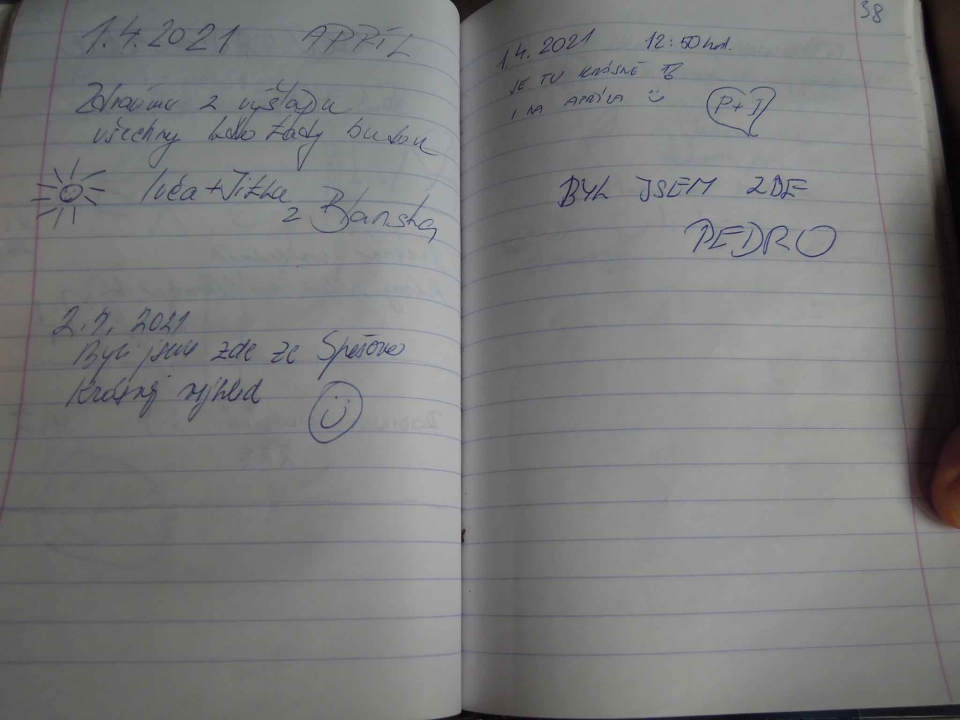 1.4.2021 APRÍL
Zdravíme z výšlapu
všechny kdo tady budou
Iva + Jitka
z Blanska
2.4. 2021
Byli jsme zde ze Spešova
Krásný výhled
38
1.4. 2021 12:50 hod.
JE TU KRÁSNĚ
I NA APRÍLA
P+I
BYL JSEM ZDE
PEDRO